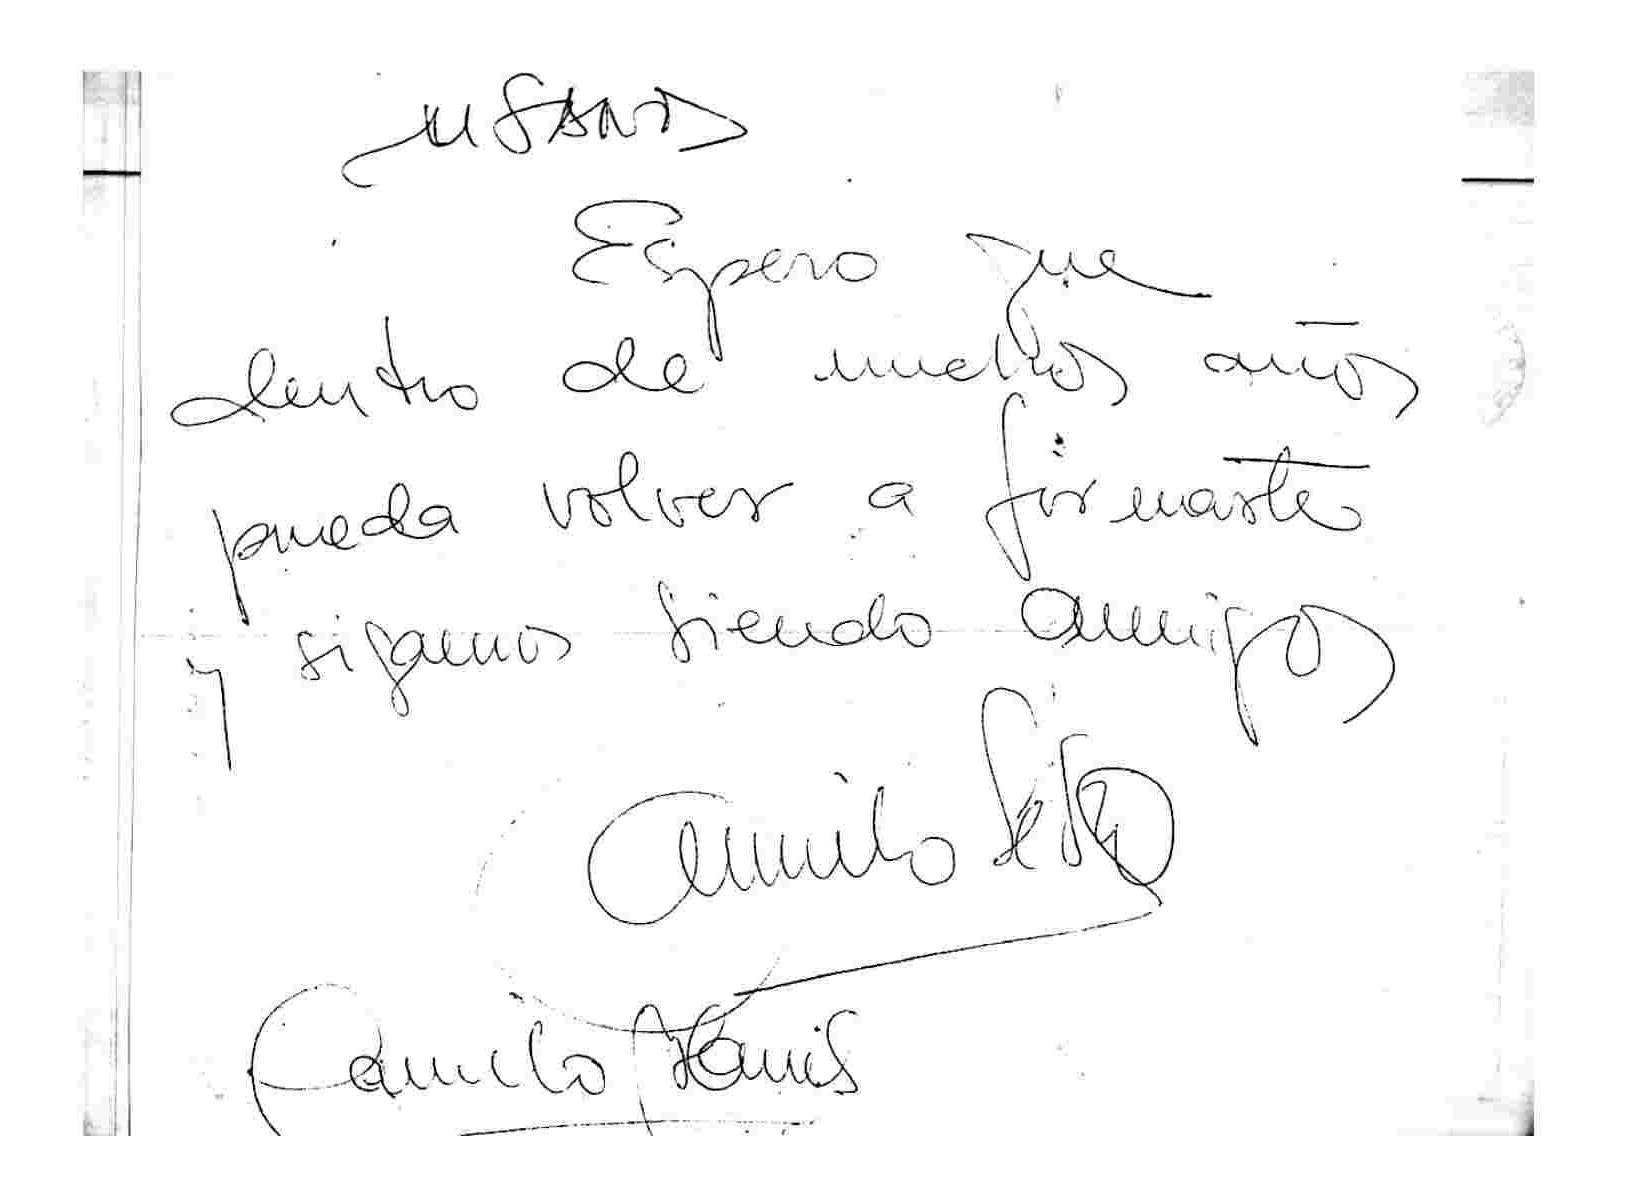 Espero que
dentro de muchos años
pueda volver a firmarte
y sigamos siendo amigos
Camilo Sesto
Camilo